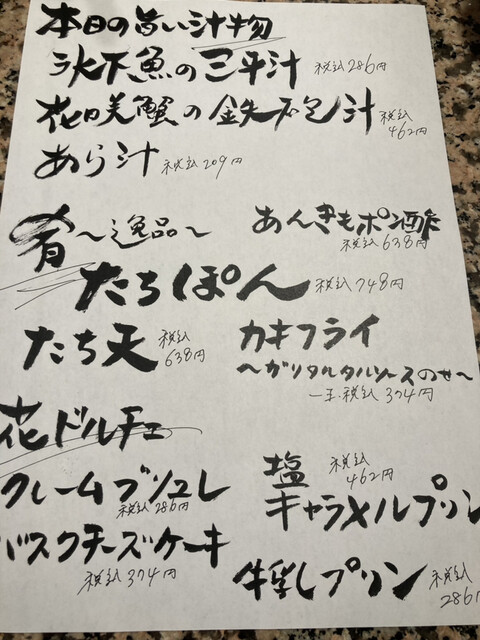 本日の旨い汁物
氷下魚の三平汁 税込286円
花咲蟹の鉄砲汁 税込462円
あら汁 税込209円
肴〜逸品〜
あんきもポン酢 税込638円
たちぽん 税込748円
たち天 税込638円
カキフライ
〜ガリタルタルソースのせ〜
一玉・税込374円
花ドルチェ
クレームブリュレ 税込286円
塩キャラメルプリン 税込462円
バスクチーズケーキ 税込374円
牛乳プリン 税込286円